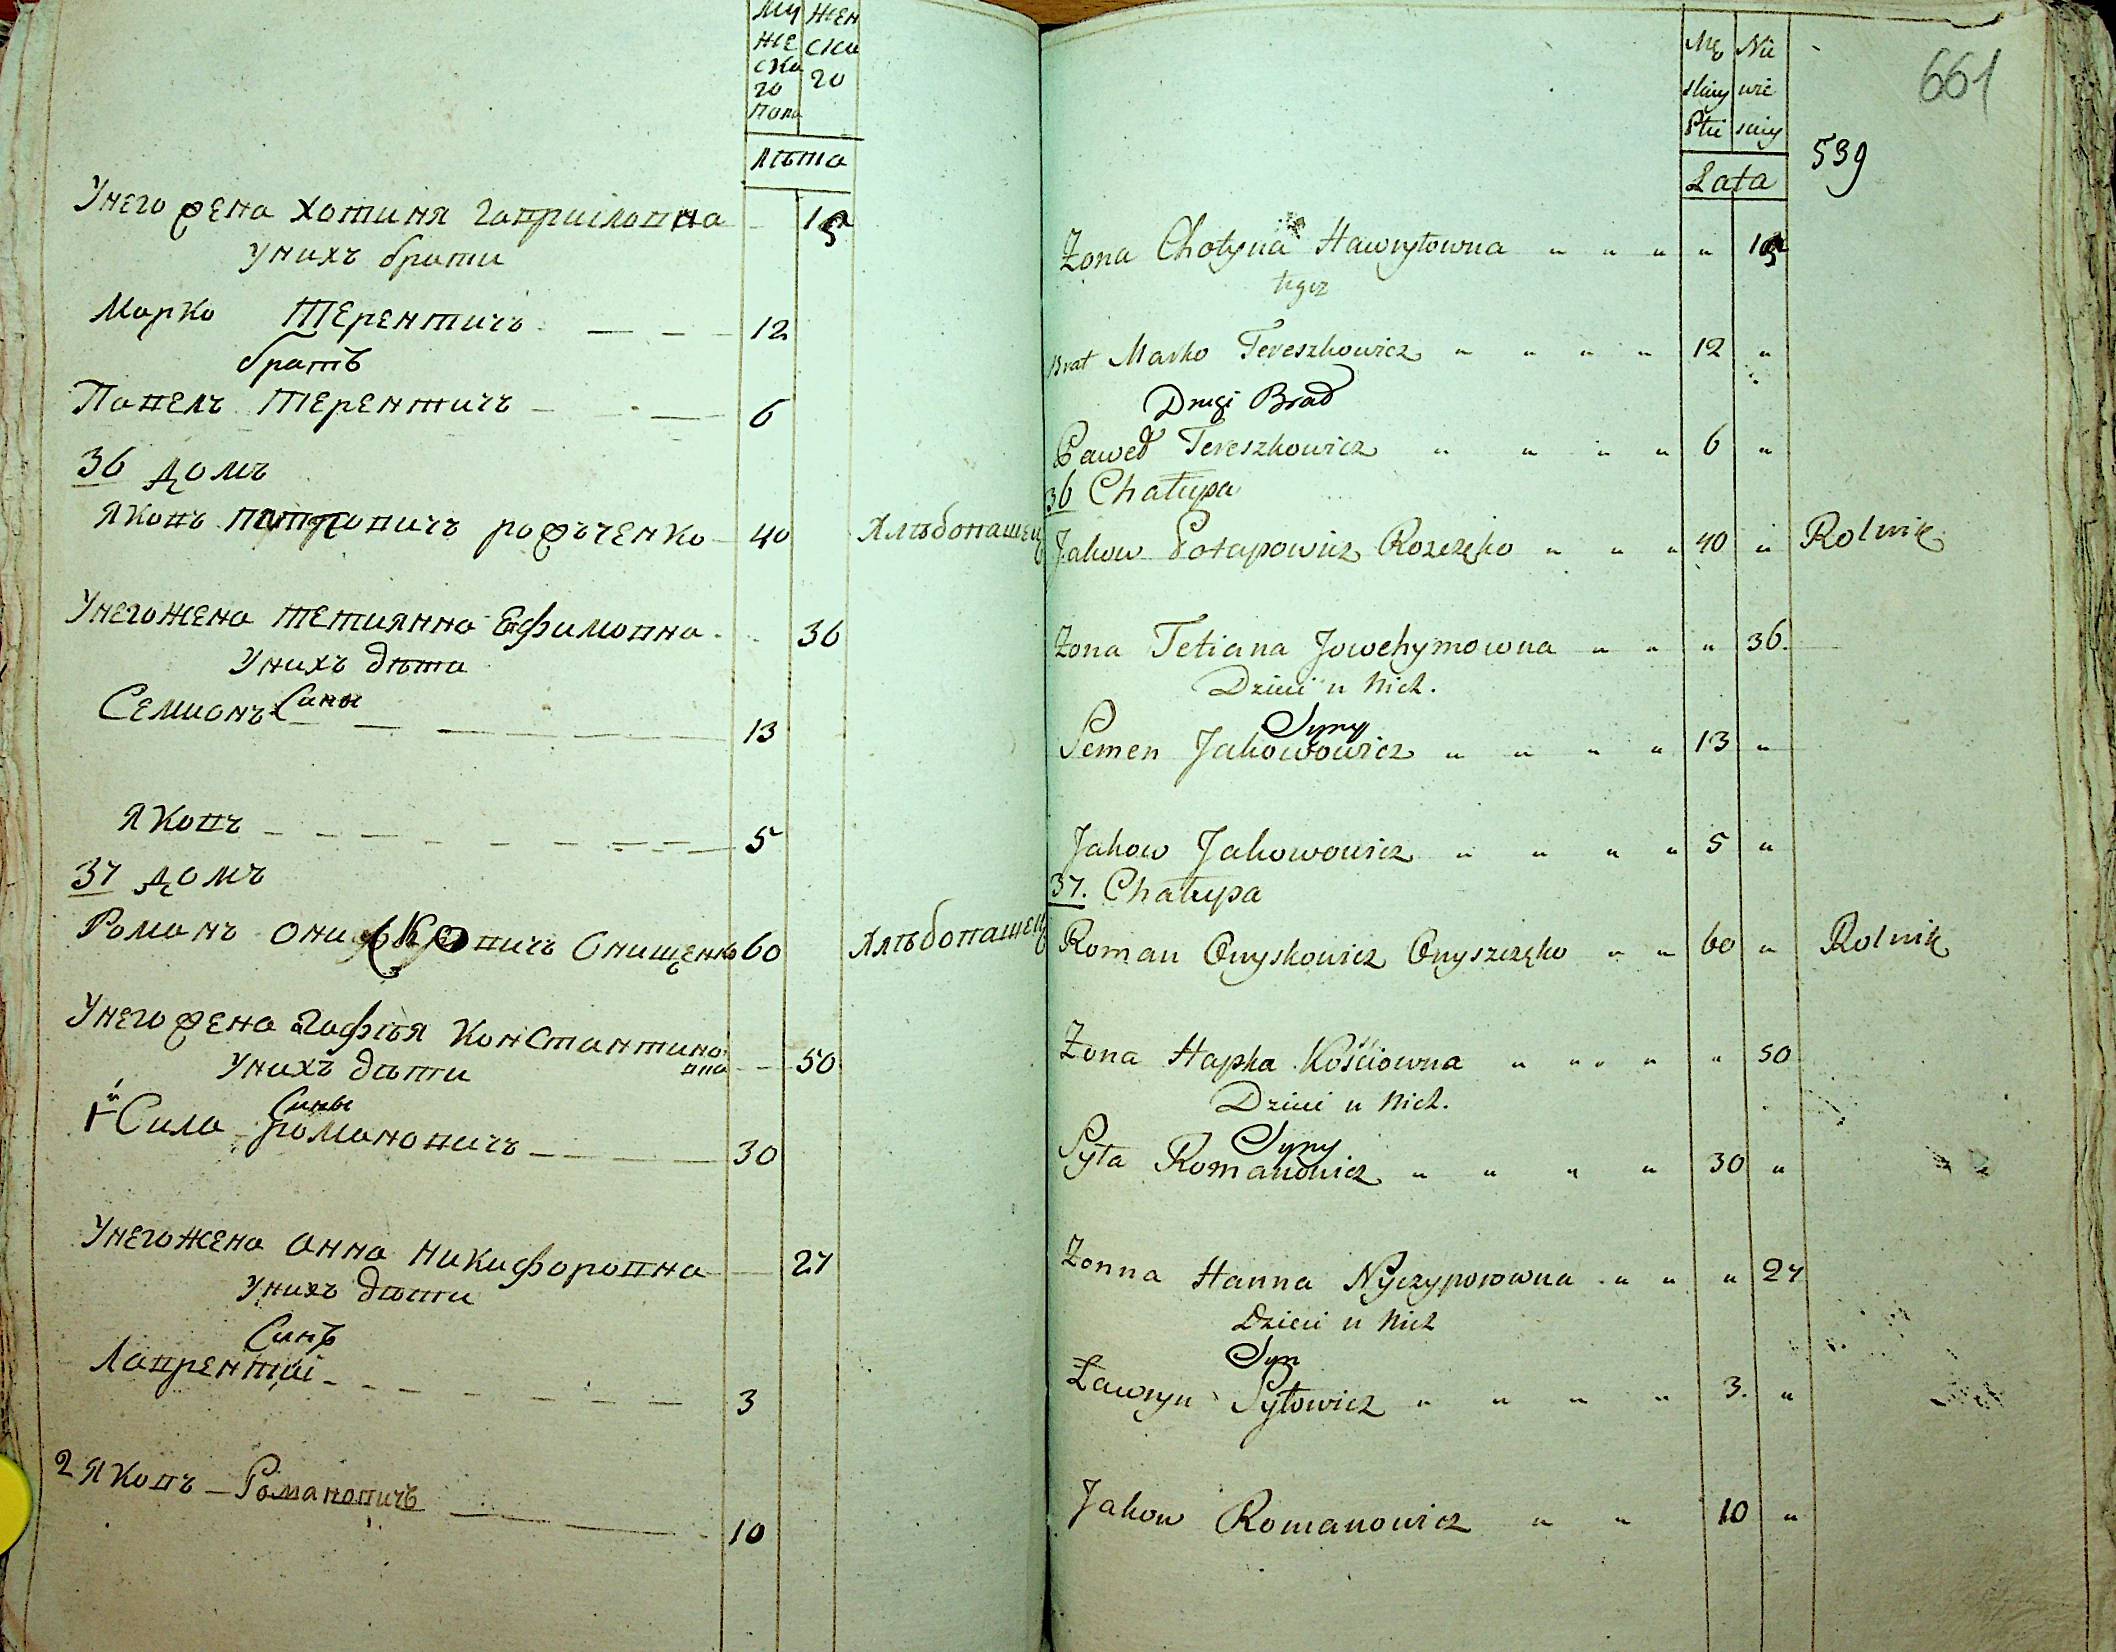 Му Жен
же ски
ско го
го
Пола
Лѣта
Унего жена Хотиня Гавриіловна 15
Унихъ брати
Марко Терентичъ 12
братъ
Павелъ Терентичъ 6
36 домъ
Яковъ рофъченко 40 Хлѣбопашец
Унего жена Тетиянна Ефимовна 36
Унихъ дѣти
Сины
Семионъ 13
Яковъ 5
37 домъ
Романъ Онищенко 60 Хлѣбопашец
Унего жена Гафѣя Константинов
вна 50
Унихъ дѣти
Сины
1 Сила романовичъ 30
Унего жена Анна Никифоровна 27
Унихъ дѣти
Синъ
Лаврентиі 3
2 Яковъ Романовичъ 10
661
539
Mę Nie
skiey wie
Płci sciey
Lata
Żona Chotyna Hawryłowna " " " " 15
tegoz
Brat Marko Tereszkowicz " " " " 12 "
Drugi Brad
Paweł Tereszkowicz " " " " 6 "
36 Chałupa
Jakow Potapowicz Rozczęko " " " 40 " Rolnik
Żona Tetiana Jowchymowna " " " 36.
Dzieci u Nich.
Syny
Semen Jakowowicz " " " " 13 "
Jakow Jakowowicz " " " " 5 "
37. Chałupa
Roman Onyskowicz Onyszczęko " " 60 " Rolnik
Żona Hapka Kościowna " " " " 50
Dzieci u Nich.
Syny
Syła Romanowicz " " " " 30 "
Żonna Hanna Nyczyporowna " " " 27
Dzieci u Nich
Syn
Ławryn Syłowicz " " " " 3. "
Jakow Romanowicz " " 10 "